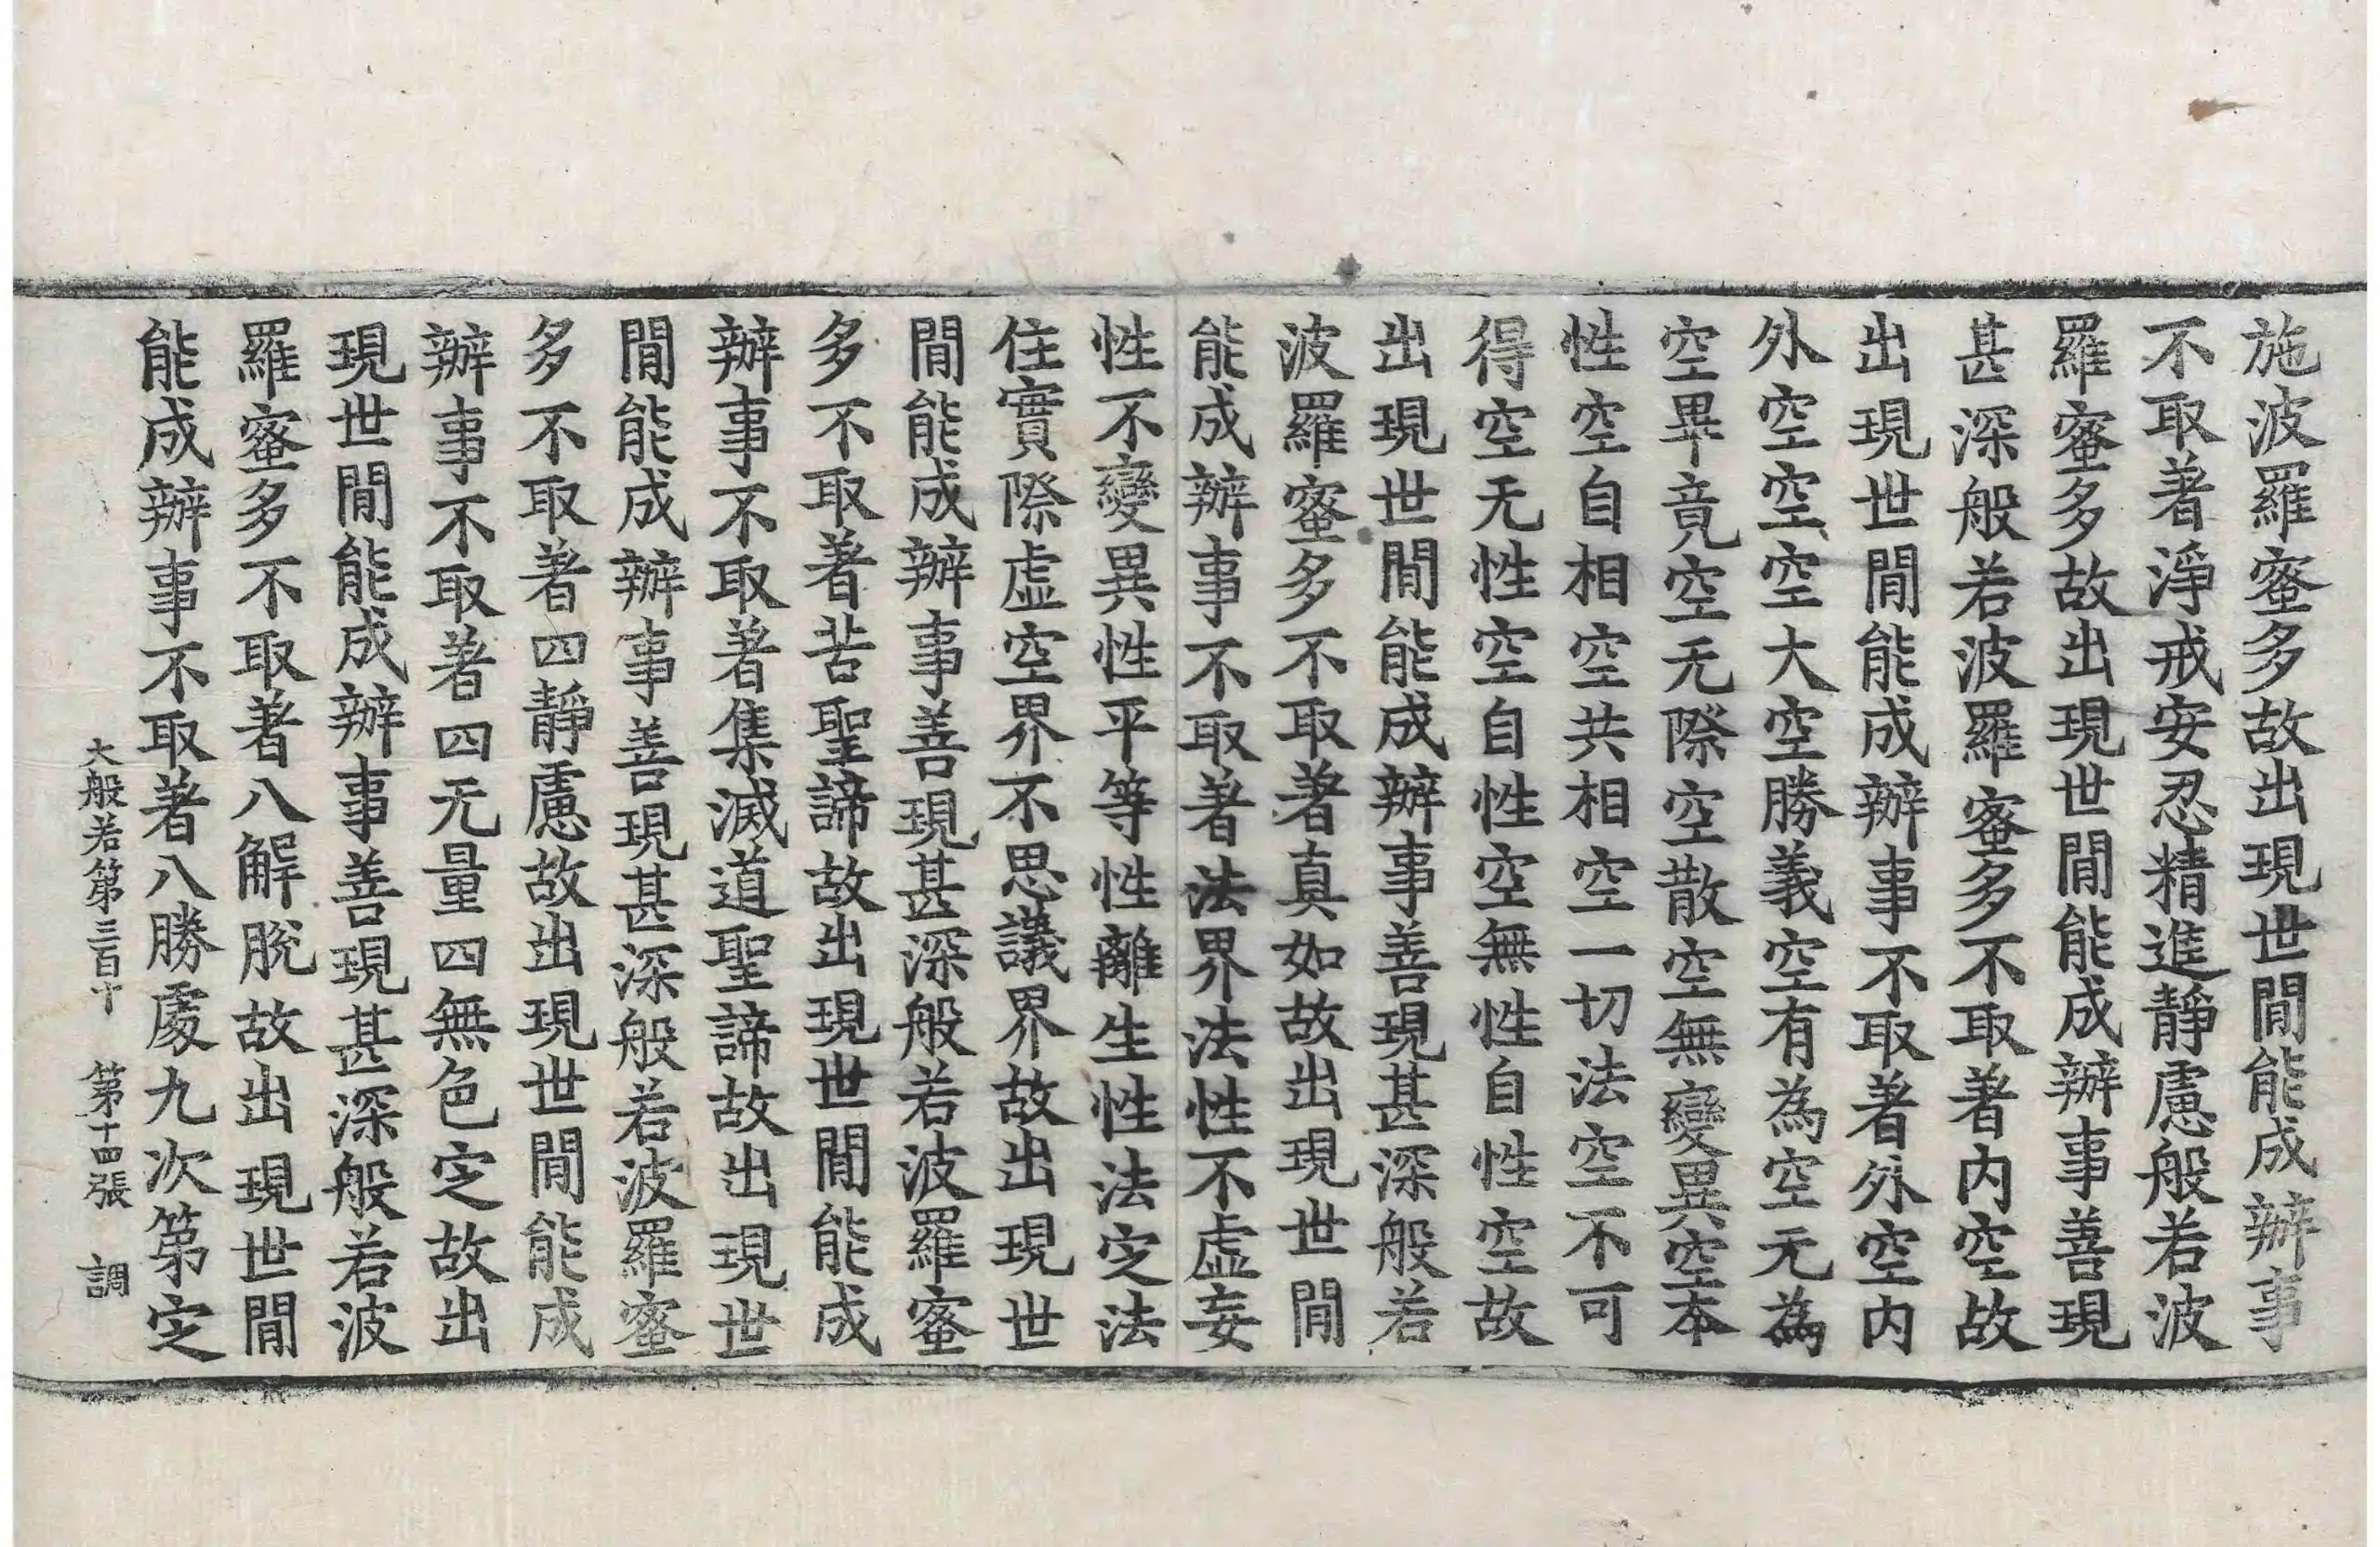 施波羅蜜多故出現世閒能成辦事
不取著淨戒安忍精進靜慮般若波
羅蜜多故出現世閒能成辦事善現
甚深般若波羅蜜多不取著内空故
出現世閒能成辦事不取著外空内
外空空空大空勝義空有為空无為
空畢竟空无際空散空無變異空本
性空自相空共相空一切法空不可
得空无性空自性空無性自性空故
出現世閒能成辦事善現甚深般若
波羅蜜多不取著真如故出現世閒
能成辦事不取著法界法性不虛妄
性不變異性平等性離生性法定法
住實際虛空界不思議界故出現世
閒能成辦事善現甚深般若波羅蜜
多不取著苦聖諦故出現世閒能成
辦事不取著集滅道聖諦故出現世
閒能成辦事善現甚深般若波羅蜜
多不取著四靜慮故出現世閒能成
辦事不取著四无量四無色定故出
現世閒能成辦事善現甚深般若波
羅蜜多不取著八解脫故出現世閒
能成辦事不取著八勝處九次第定
大般若第三百十 第十四張 調